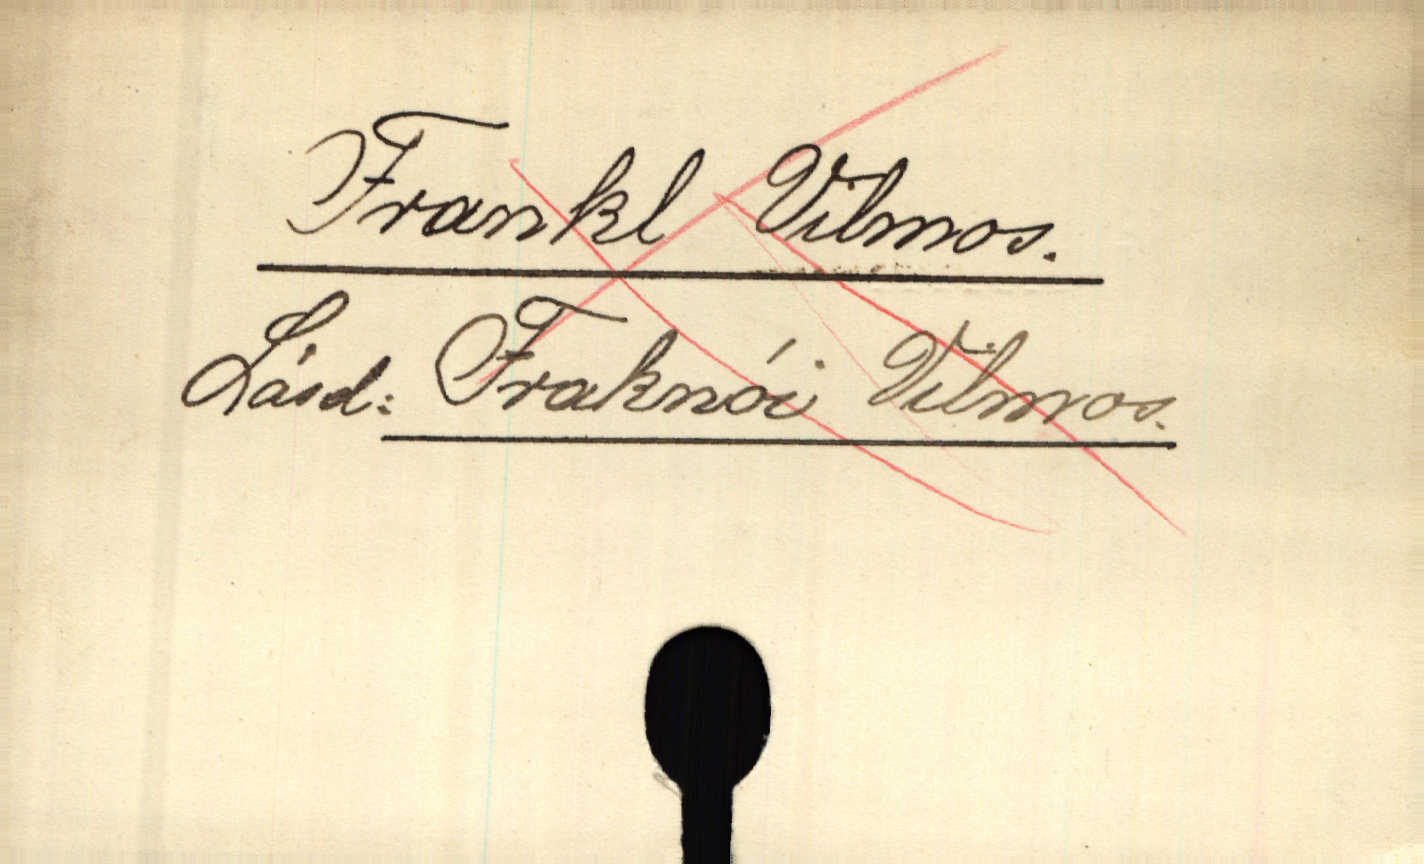 Frankl Vilmos.
Lásd: Fraknói Vilmos.